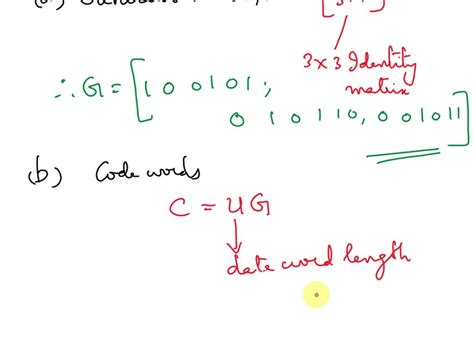 (a)
3×3 Identity
matrix
∴ G = [ 1 0 0 1 0 1 ;
0 1 0 1 1 0, 0 0 1 0 1 1 ]
(b) Code words
C = UG
date word length